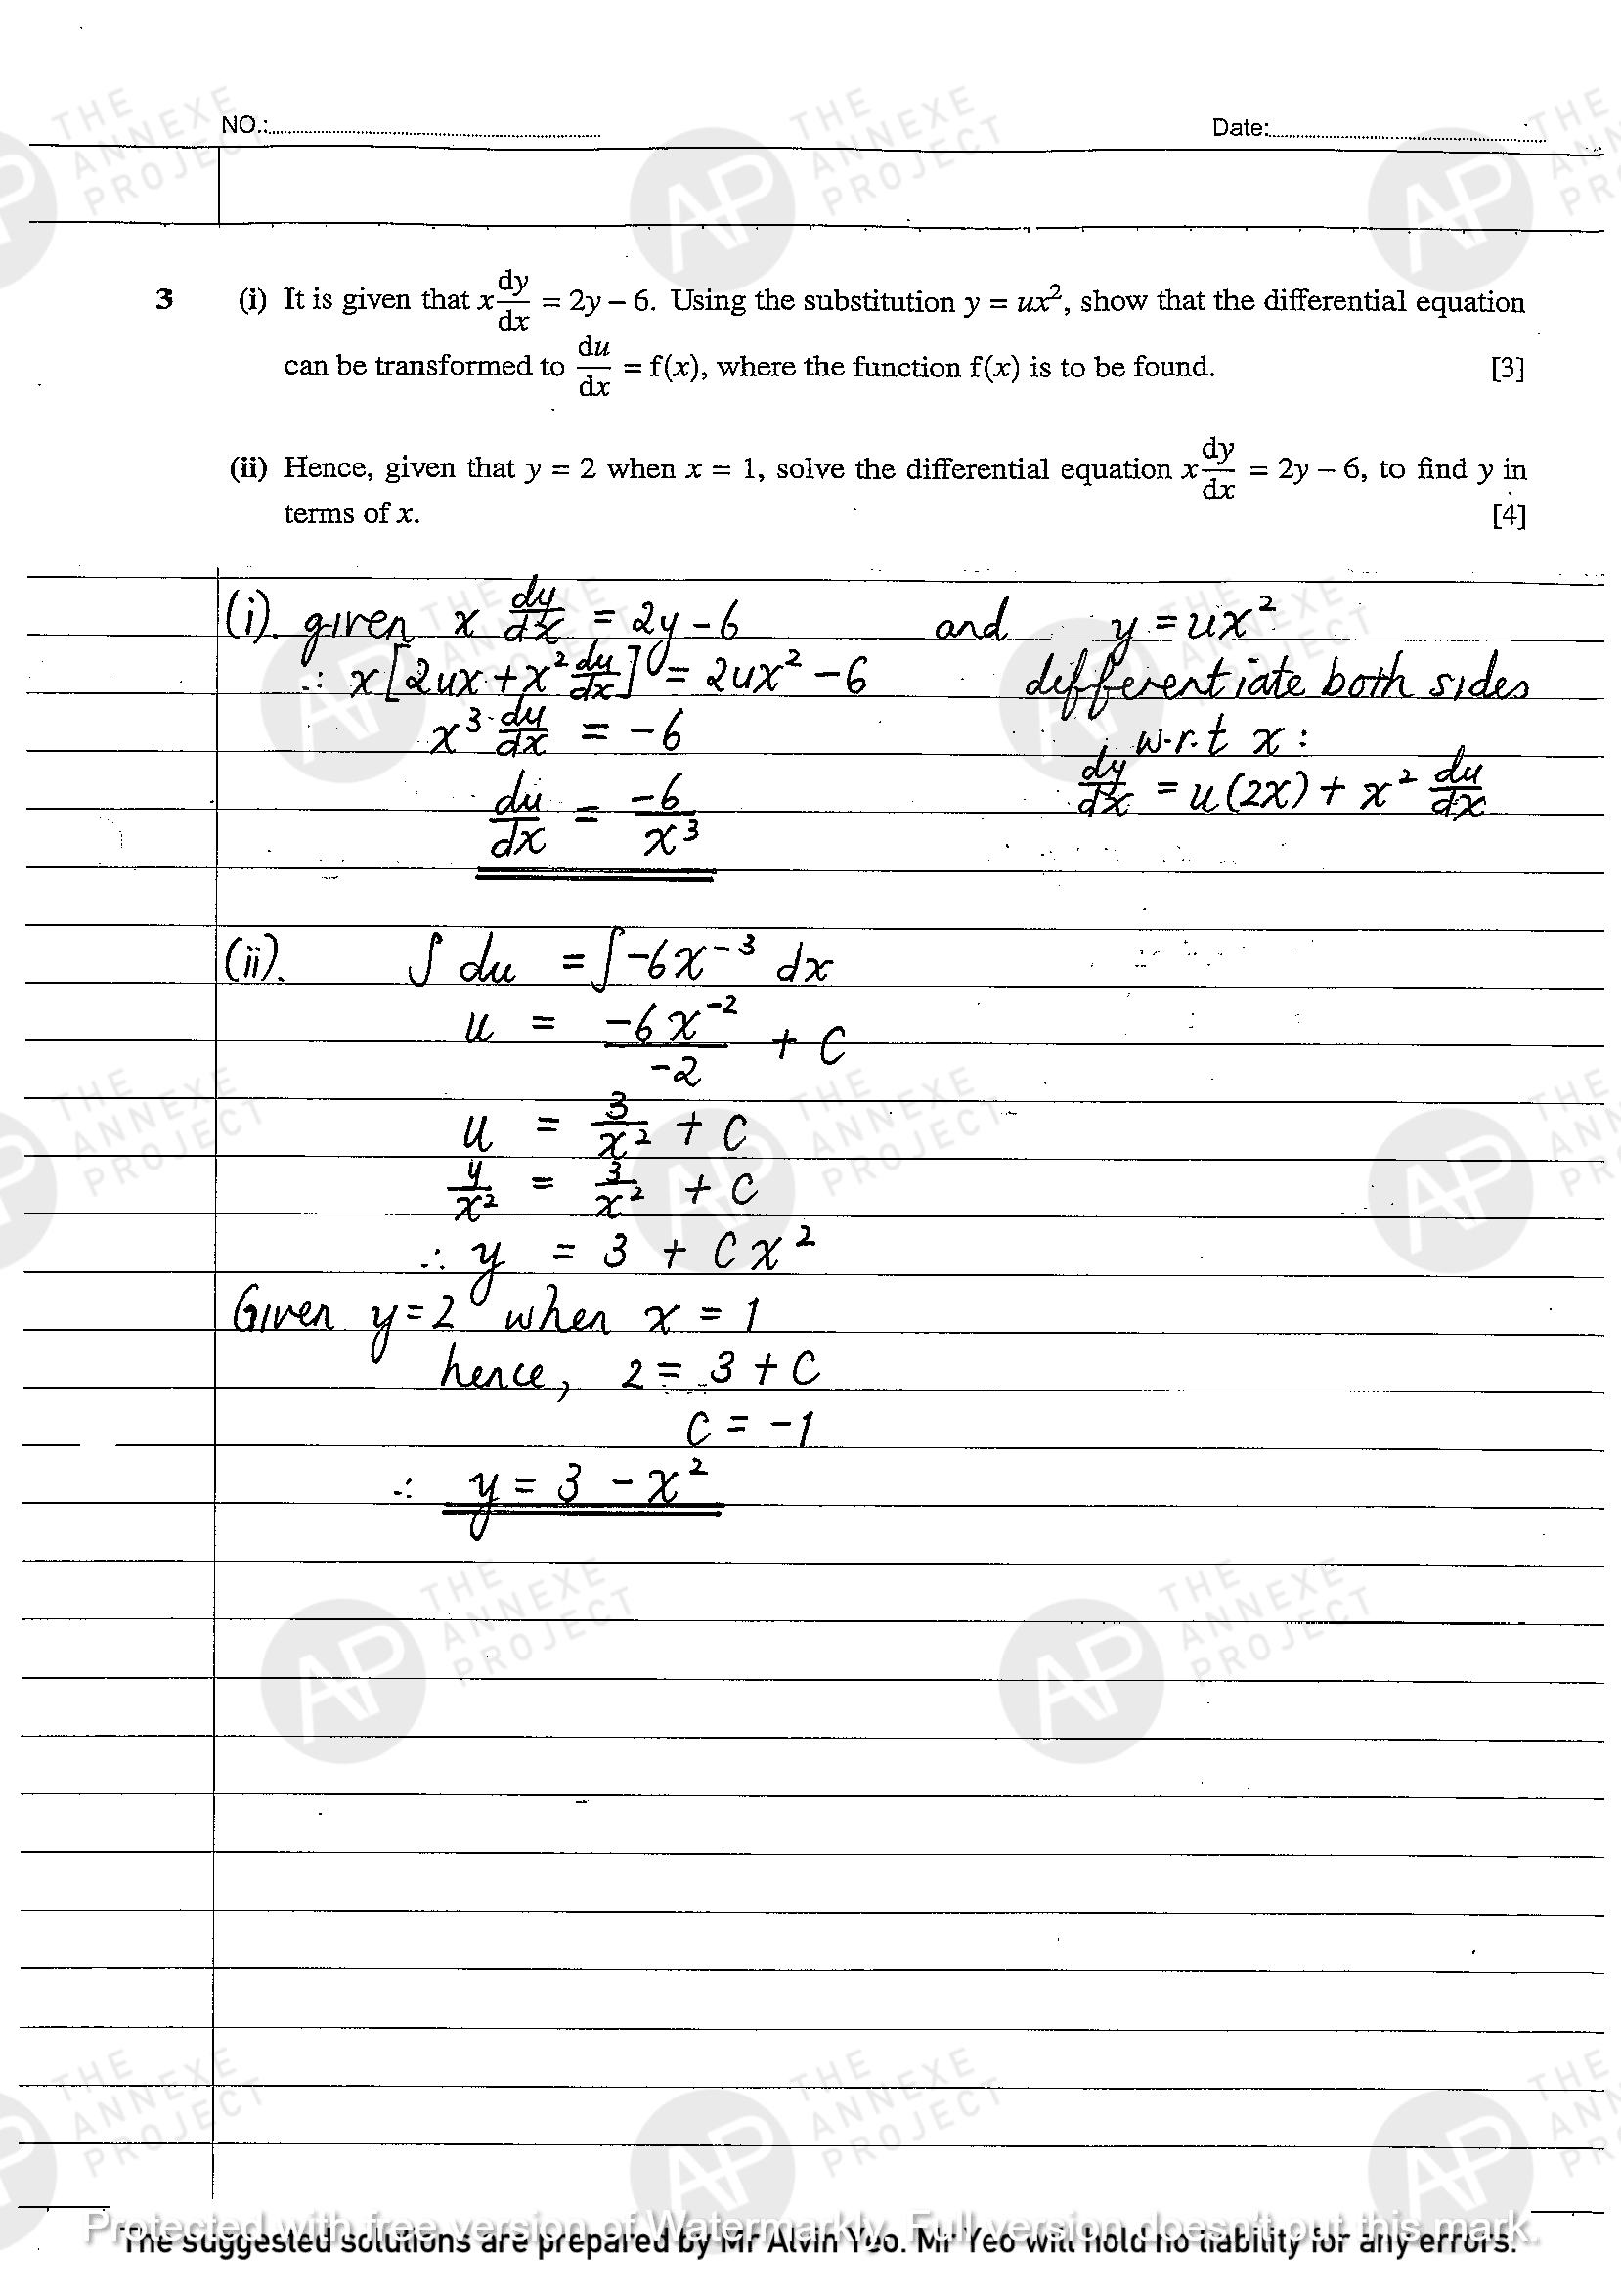 NO.:
Date:
3 (i) It is given that x dy/dx = 2y – 6. Using the substitution y = ux², show that the differential equation
can be transformed to du/dx = f(x), where the function f(x) is to be found. [3]
(ii) Hence, given that y = 2 when x = 1, solve the differential equation x dy/dx = 2y – 6, to find y in
terms of x. [4]
(i). given x dy/dx = 2y – 6 and y = ux²
∴ x[2ux + x² du/dx] = 2ux² – 6 differentiate both sides
x³ du/dx = –6 w.r.t x :
dy/dx = u(2x) + x² du/dx
du/dx = –6/x³
(ii). ∫ du = ∫ –6x⁻³ dx
u = –6x⁻²/–2 + C
u = 3/x² + C
y/x² = 3/x² + C
∴ y = 3 + Cx²
Given y = 2 when x = 1
hence, 2 = 3 + C
C = –1
∴ y = 3 – x²
THE ANNEXE PROJECT
AP
Protected with free version of Watermarkly. Full version doesn't put this mark.
The suggested solutions are prepared by Mr Alvin Yeo. Mr Yeo will hold no liability for any errors.